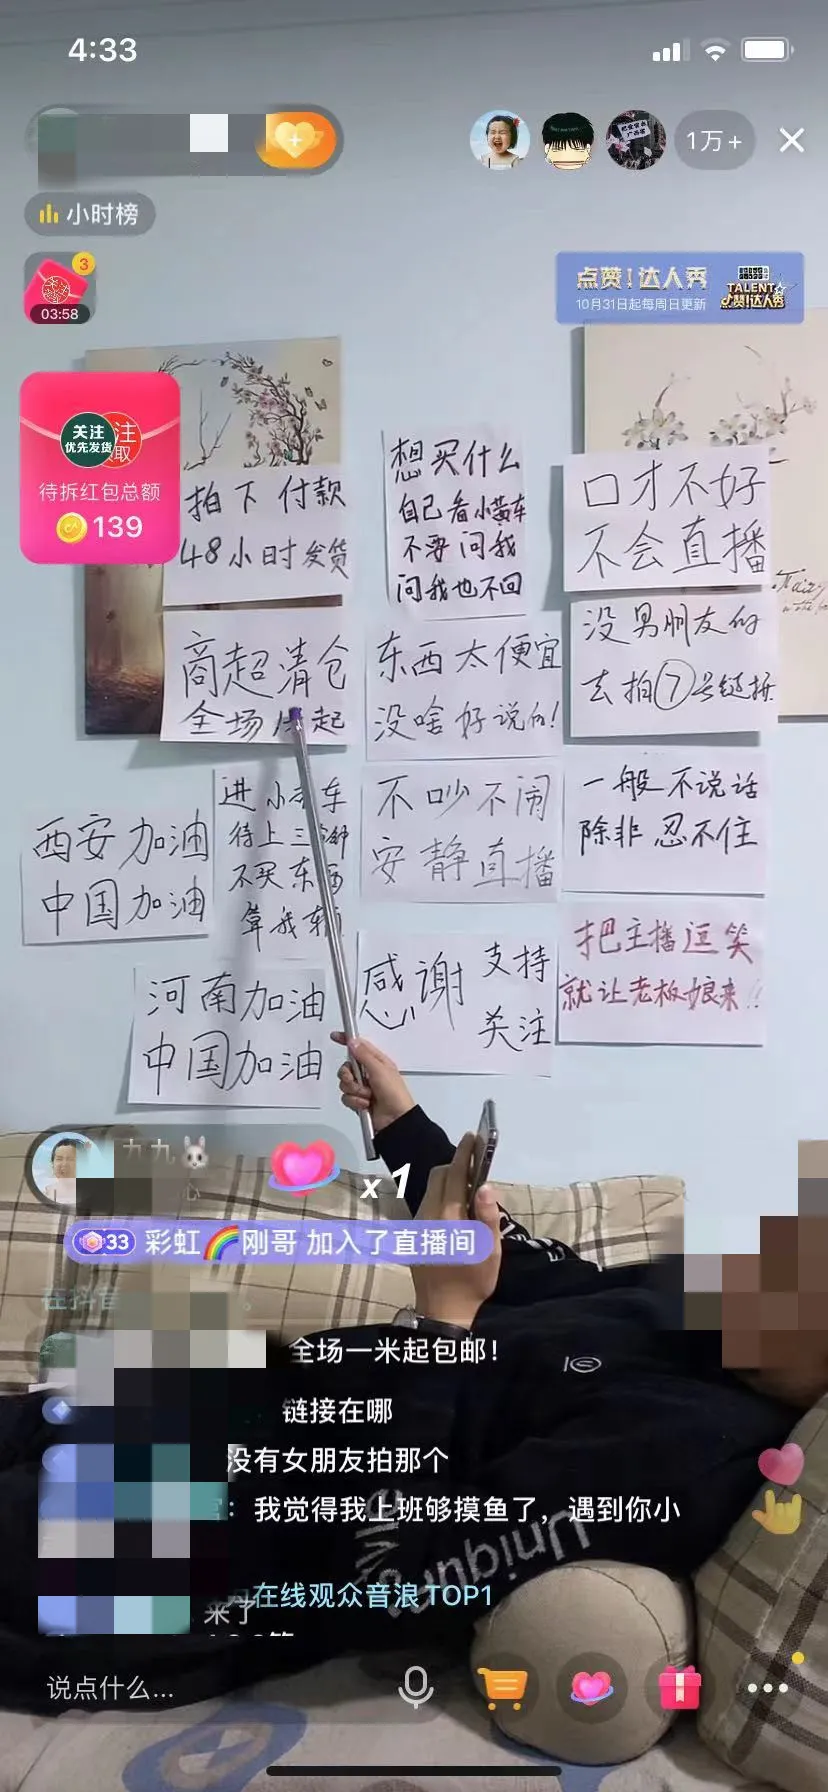 4:33
1万+
小时榜
3
03:58
点赞!达人秀
10月31日起每周日更新
TALENT
点赞!达人秀
关注
优先发货
注
取
待拆红包总额
139
拍下付款
48小时发货
想买什么
自己看小黄车
不要问我
问我也不回
口才不好
不会直播
商超清仓
全场 起
东西太便宜
没啥好说的!
没男朋友的
去拍⑦号链接
西安加油
中国加油
进小 车
待上三
不买东西
算我输
不吵不闹
安静直播
一般不说话
除非忍不住
河南加油
中国加油
感谢
支持
关注
把主播逗笑
就让老板娘来!!
九九
x1
33 彩虹🌈刚哥 加入了直播间
在抖音
全场一米起包邮!
链接在哪
没有女朋友拍那个
:我觉得我上班够摸鱼了,遇到你小
在线观众音浪TOP1
来了
说点什么...